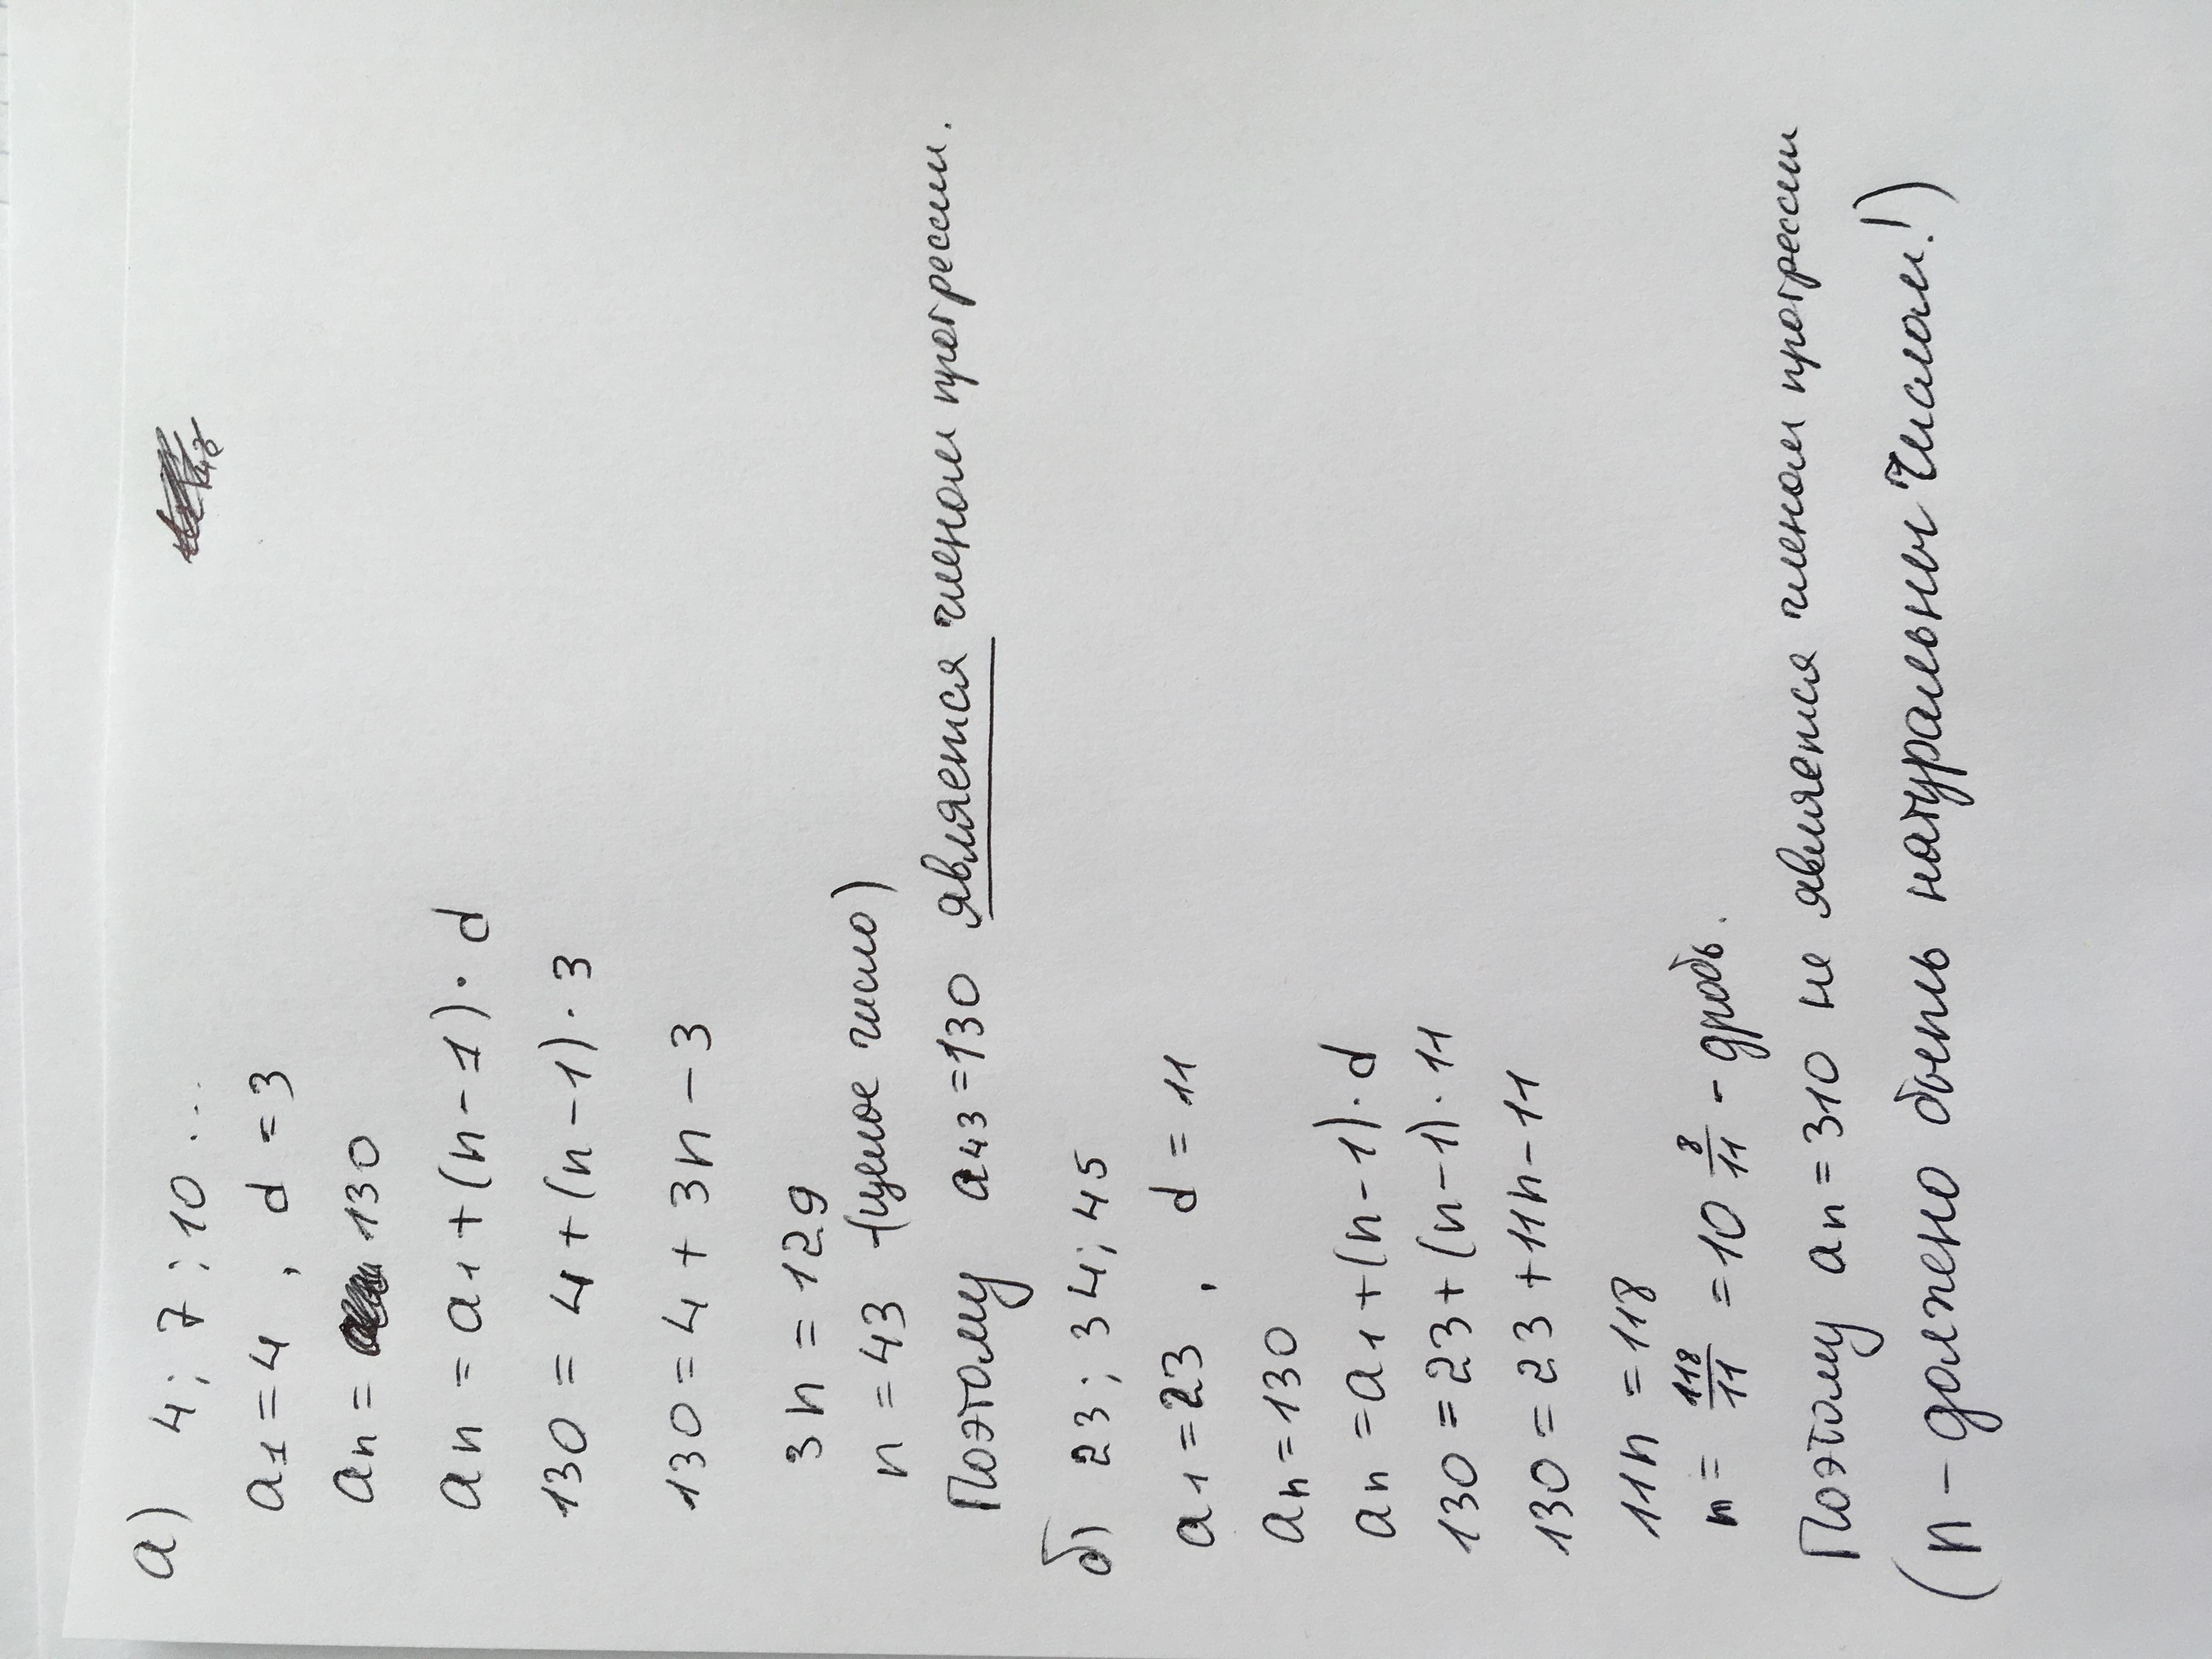 а) 4; 7; 10 ...
a₁ = 4, d = 3
aₙ = 130
aₙ = a₁ + (n – 1) · d
130 = 4 + (n – 1) · 3
130 = 4 + 3n – 3
3n = 129
n = 43 (целое число)
Поэтому a₄₃ = 130 является членом прогрессии.
б) 23; 34; 45
a₁ = 23, d = 11
aₙ = 130
aₙ = a₁ + (n – 1) · d
130 = 23 + (n – 1) · 11
130 = 23 + 11n – 11
11n = 118
n = 118/11 = 10 8/11 – дробь.
Поэтому aₙ = 310 не является членом прогрессии
(n – должено быть натуральны числом!)